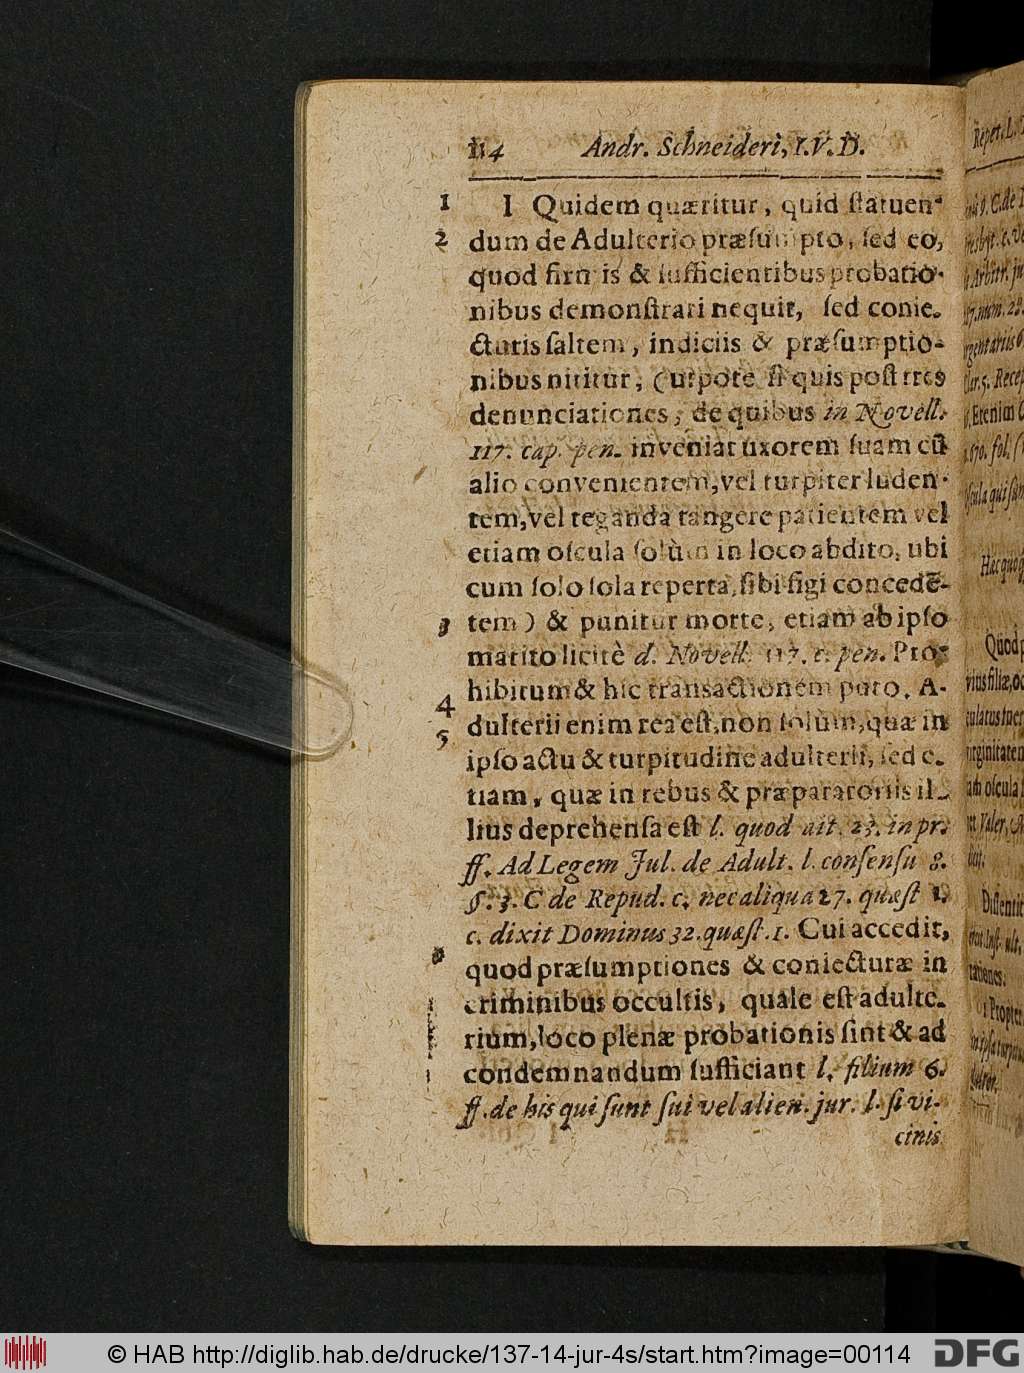 114 Andr. Schneideri, I.V.D.
1 I Quidem quæritur, quid ſtatuen-
2 dum de Adulterio præſumpto, ſed eo,
quod firmis & ſufficientibus probatio-
nibus demonſtrari nequit, ſed conie-
cturis ſaltem, indiciis & præſumptio-
nibus nititur, (utpote ſi quis poſt tres
denunciationes, de quibus in Novell.
117. cap. pen. inveniat uxorem ſuam cū
alio convenientem, vel turpiter luden-
tem, vel teganda tangere patientem vel
etiam oſcula ſolùm in loco abdito, ubi
cum ſolo ſola reperta, ſibi figi concedē-
3 tem) & punitur morte, etiam ab ipſo
marito licitè d. Novell. 117. c. pen. Pro-
hibitum & hic transactionem puto. A-
4 dulterii enim rea eſt, non ſolùm, quæ in
5 ipſo actu & turpitudine adulterii, ſed e-
tiam, quæ in rebus & præparatoriis il-
lius deprehenſa eſt l. quod ait. 23. in pr.
ff. Ad Legem Jul. de Adult. l. conſenſu 8.
§. 3. C de Repud. c. nec aliqua 27. quæſt 1.
c. dixit Dominus 32. quæſt. 1. Cui accedit,
quod præſumptiones & coniecturæ in
criminibus occultis, quale eſt adulte-
rium, loco plenæ probationis ſint & ad
condemnandum ſufficiant l. filium 6.
ff. de his qui ſunt ſui vel alien. jur. l. ſi vi-
cinis
Repet. L.
Etenim
Hic quoq
Quod
rius filiæ, oc
virginitatem
oſcula
Valer.
Diſſentit
tationes.
1 Propter
© HAB http://diglib.hab.de/drucke/137-14-jur-4s/start.htm?image=00114
DFG